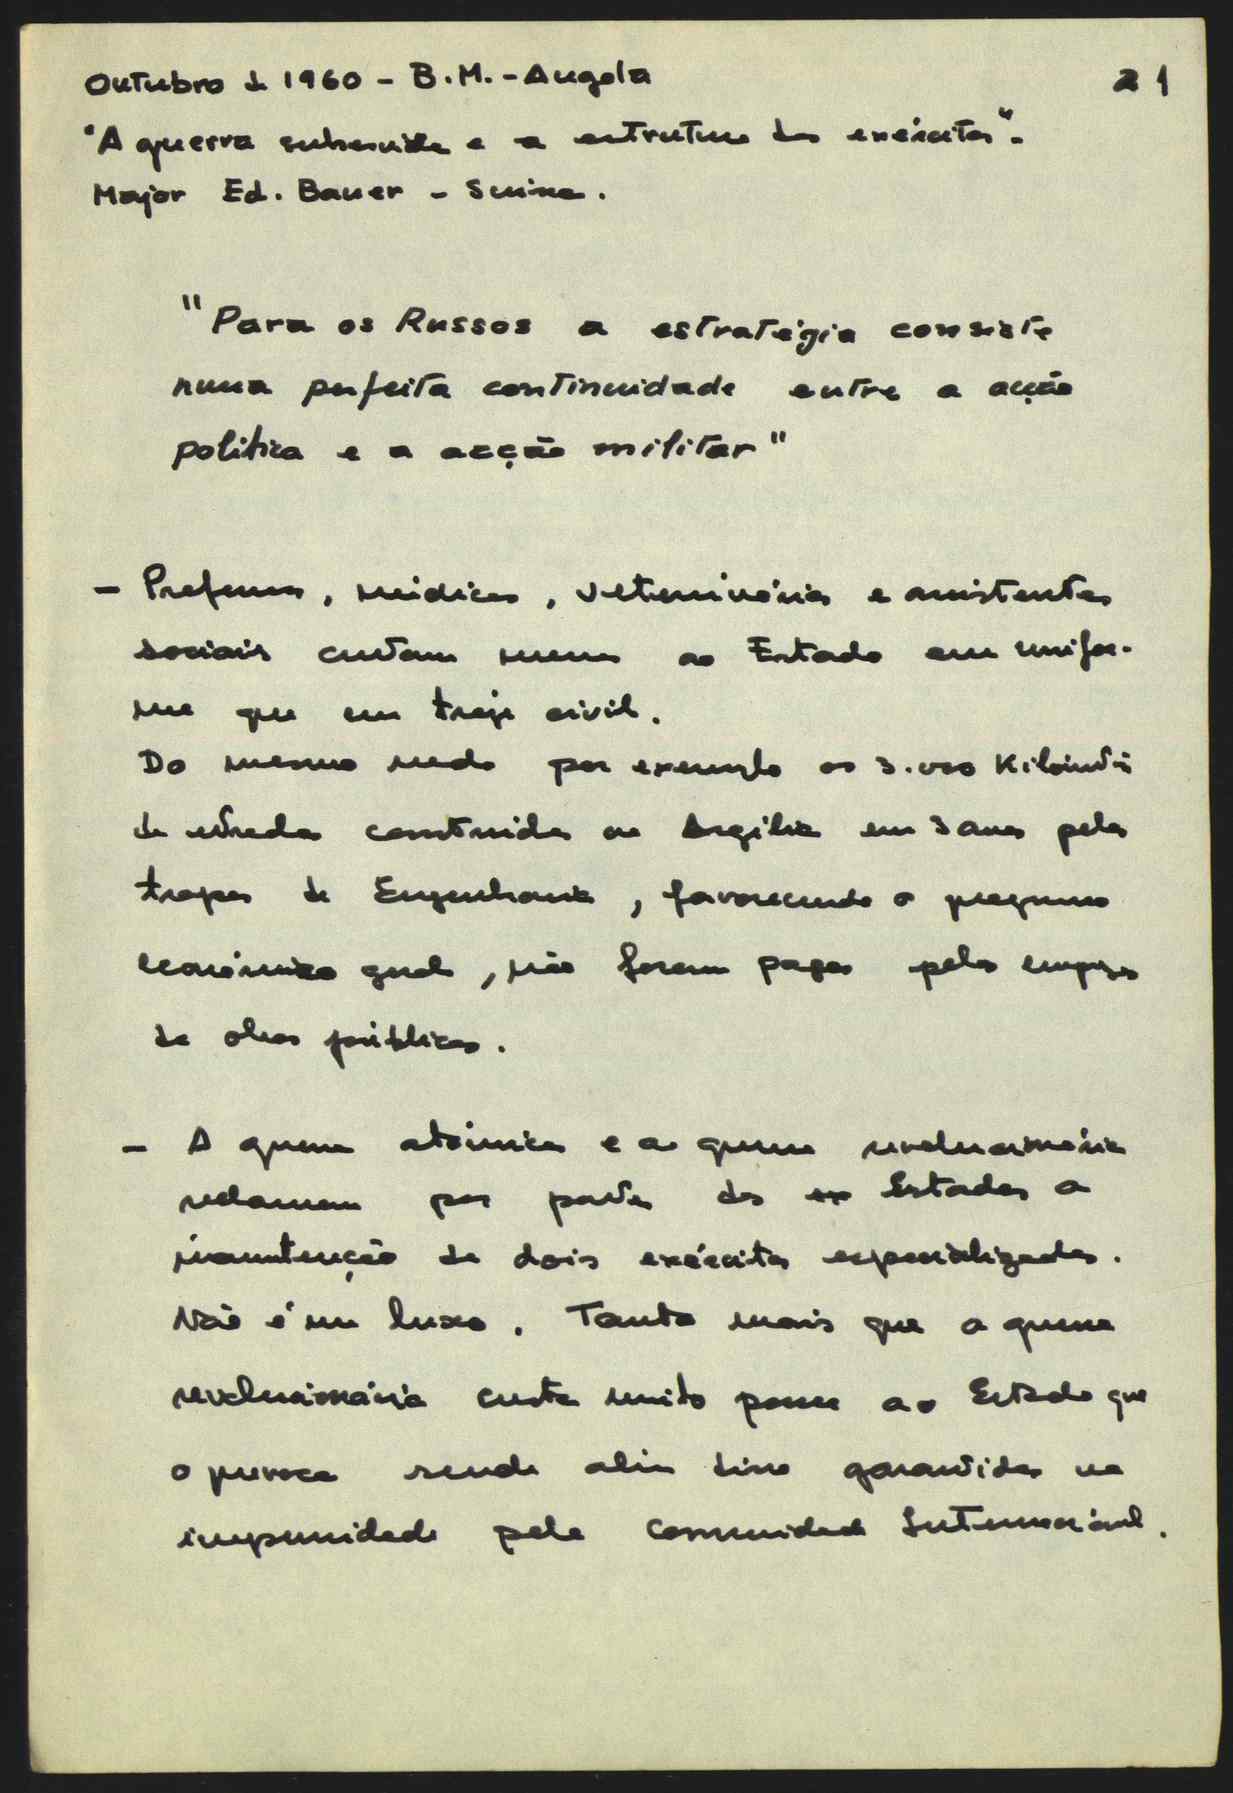 Outubro de 1960 - B.M. - Angola 21
"A guerra subversiva e a estrutura dos exércitos".
Major Ed. Bauer - Suissa.
"Para os Russos a estratégia consiste
numa perfeita continuidade entre a acção
politica e a acção militar"
- Professores, médicos, veterinários e assistentes
sociais custam menos ao Estado em unifor-
me que em traje civil.
Do mesmo modo por exemplo os 3.000 Kilómetros
de estradas construidas na Argélia em 3 anos pelas
tropas de Engenharia, favorecendo o progresso
económico geral, não foram pagos pelas empresas
de obras públicas.
- A guerra atómica e a guerra revolucionária
reclamam por parte dos Estados a
manutenção de dois exércitos especializados.
Não é um luxo. Tanto mais que a guerra
revolucionária custa muito pouco ao Estado que
a provoca sendo além disso garantida na
impunidade pela Comunidade Internacional.